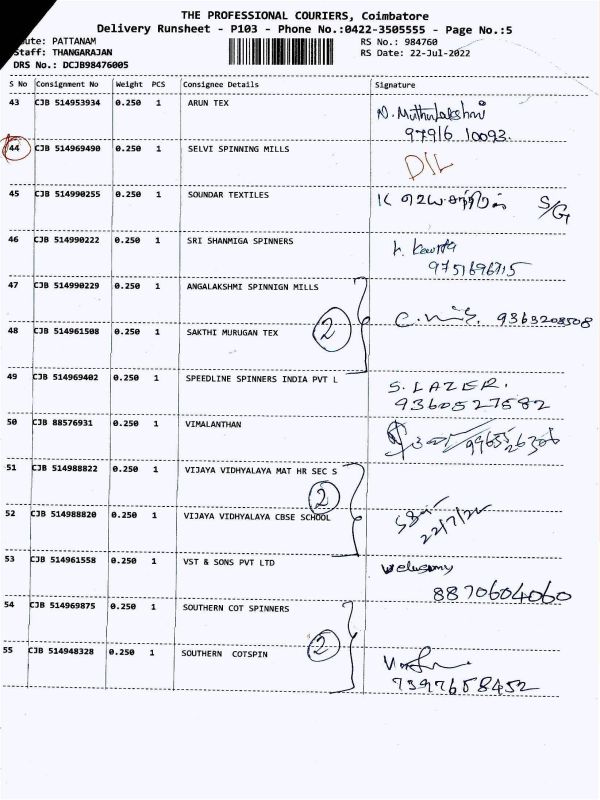 THE PROFESSIONAL COURIERS, Coimbatore
Delivery Runsheet - P103 - Phone No.:0422-3505555 - Page No.:5
ute: PATTANAM RS No.: 984760
Staff: THANGARAJAN RS Date: 22-Jul-2022
DRS No.: DCJB98476005
S No Consignment No Weight PCS Consignee Details Signature
43 CJB 514953934 0.250 1 ARUN TEX N. Muthulakshmi
97916 10093.
44 CJB 514969490 0.250 1 SELVI SPINNING MILLS D/L
45 CJB 514990255 0.250 1 SOUNDAR TEXTILES K S/G
46 CJB 514990222 0.250 1 SRI SHANMIGA SPINNERS
9751696715
47 CJB 514990229 0.250 1 ANGALAKSHMI SPINNIGN MILLS
2 9363208508
48 CJB 514961508 0.250 1 SAKTHI MURUGAN TEX
49 CJB 514969402 0.250 1 SPEEDLINE SPINNERS INDIA PVT L S. LAZER.
9360527582
50 CJB 88576931 0.250 1 VIMALANTHAN
51 CJB 514988822 0.250 1 VIJAYA VIDHYALAYA MAT HR SEC S
2
52 CJB 514988820 0.250 1 VIJAYA VIDHYALAYA CBSE SCHOOL 22/7/22
53 CJB 514961558 0.250 1 VST & SONS PVT LTD Welusamy
8870604060
54 CJB 514969875 0.250 1 SOUTHERN COT SPINNERS
2
55 CJB 514948328 0.250 1 SOUTHERN COTSPIN
7397658452